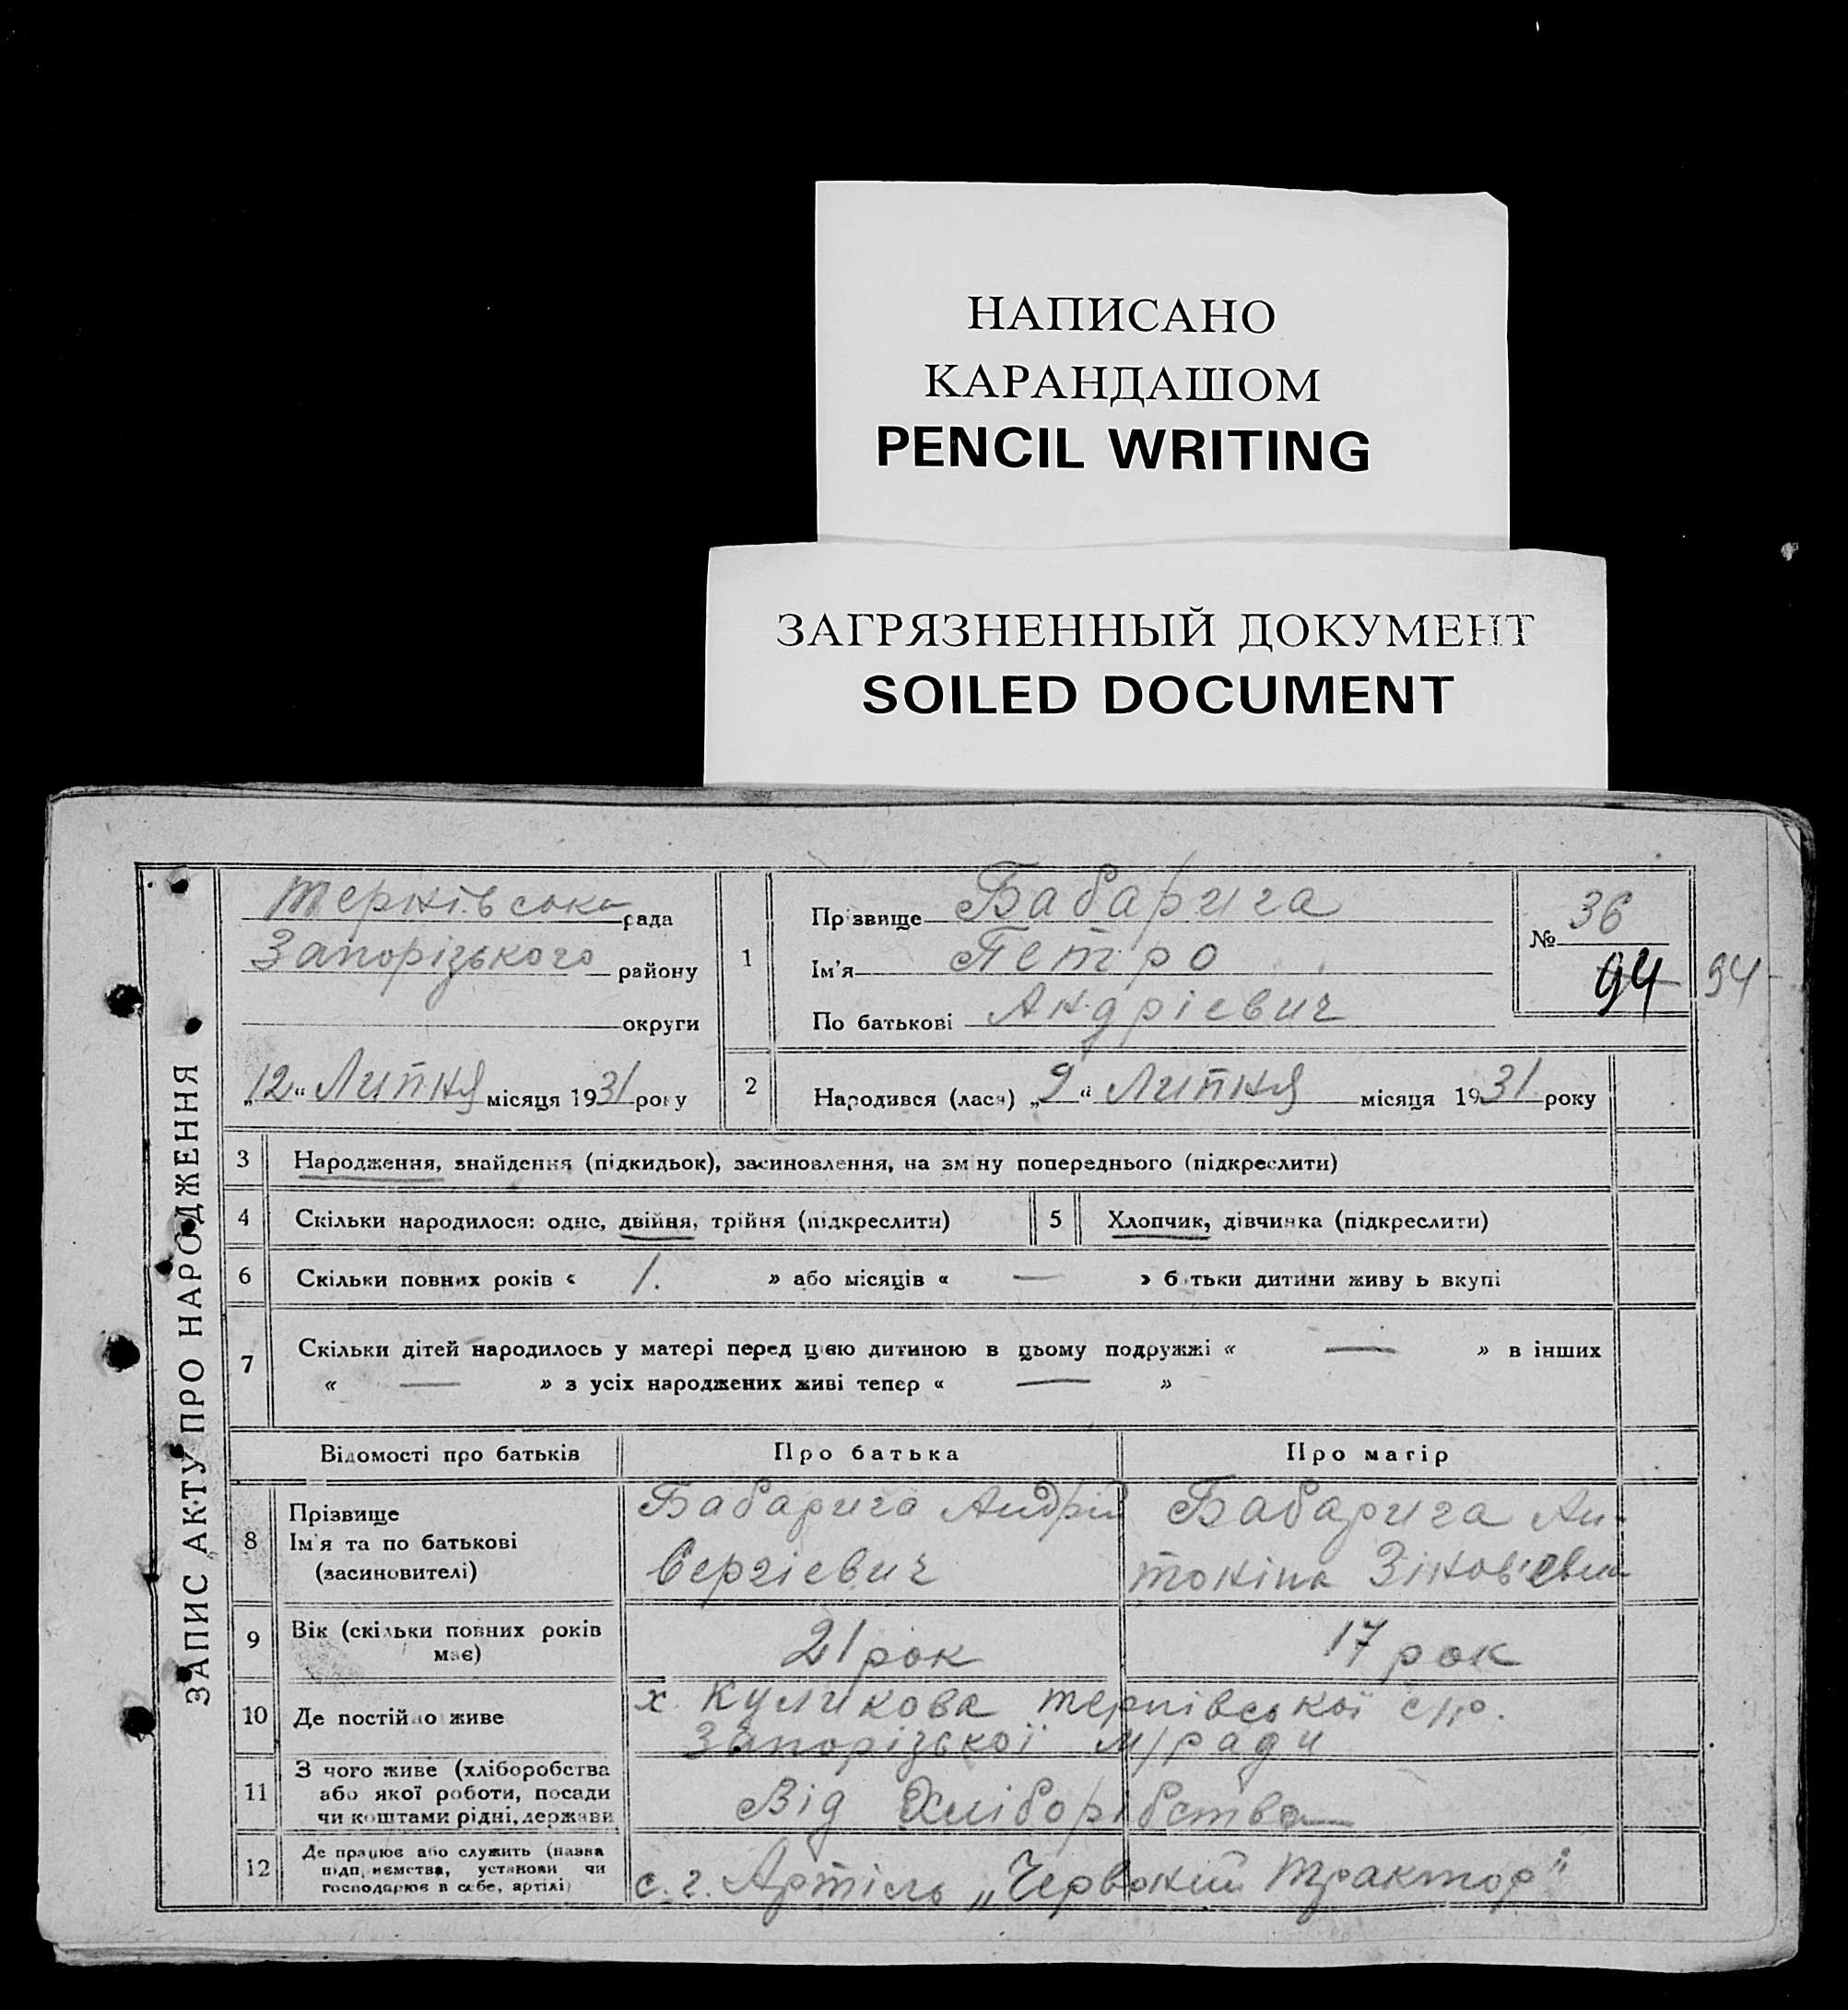 НАПИСАНО
КАРАНДАШОМ
PENCIL WRITING
ЗАГРЯЗНЕННЫЙ ДОКУМЕНТ
SOILED DOCUMENT
ЗАПИС АКТУ ПРО НАРОДЖЕННЯ
Тернівська рада
Запорізького району
округи
„12“ Липня місяця 1931 року
1
Прізвище Бабарига
Ім'я Петро
По батькові Андріевич
№ 36
94 94
2 Народився (лася) „9“ Липня місяця 1931 року
3 Народження, знайдення (підкидьок), засиновлення, на зміну попереднього (підкреслити)
4 Скільки народилося: одне, двійня, трійня (підкреслити) 5 Хлопчик, дівчинка (підкреслити)
6 Скільки повних років « 1. » або місяців « — » батьки дитини живуть вкупі
7 Скільки дітей народилось у матері перед цією дитиною в цьому подружжі « — » в інших
« — » з усіх народжених живі тепер « — »
Відомості про батьків Про батька Про матір
8 Прізвище
Ім'я та по батькові
(засиновителі)
Бабарига Андрій
Сергіевич
Бабарига Ан-
тоніна Зінов'євна
9 Вік (скільки повних років
має)
21 рок 17 рок
10 Де постійно живе х. Куликова тернівської с/р.
Запорізької м/ради
11 З чого живе (хліборобства
або якої роботи, посади
чи коштами рідні, держави
Від Хліборібства
12 Де працює або служить (назва
підприємства, установи чи
господарює в себе, артілі)
с. г. Артіль „Червоний Трактор"